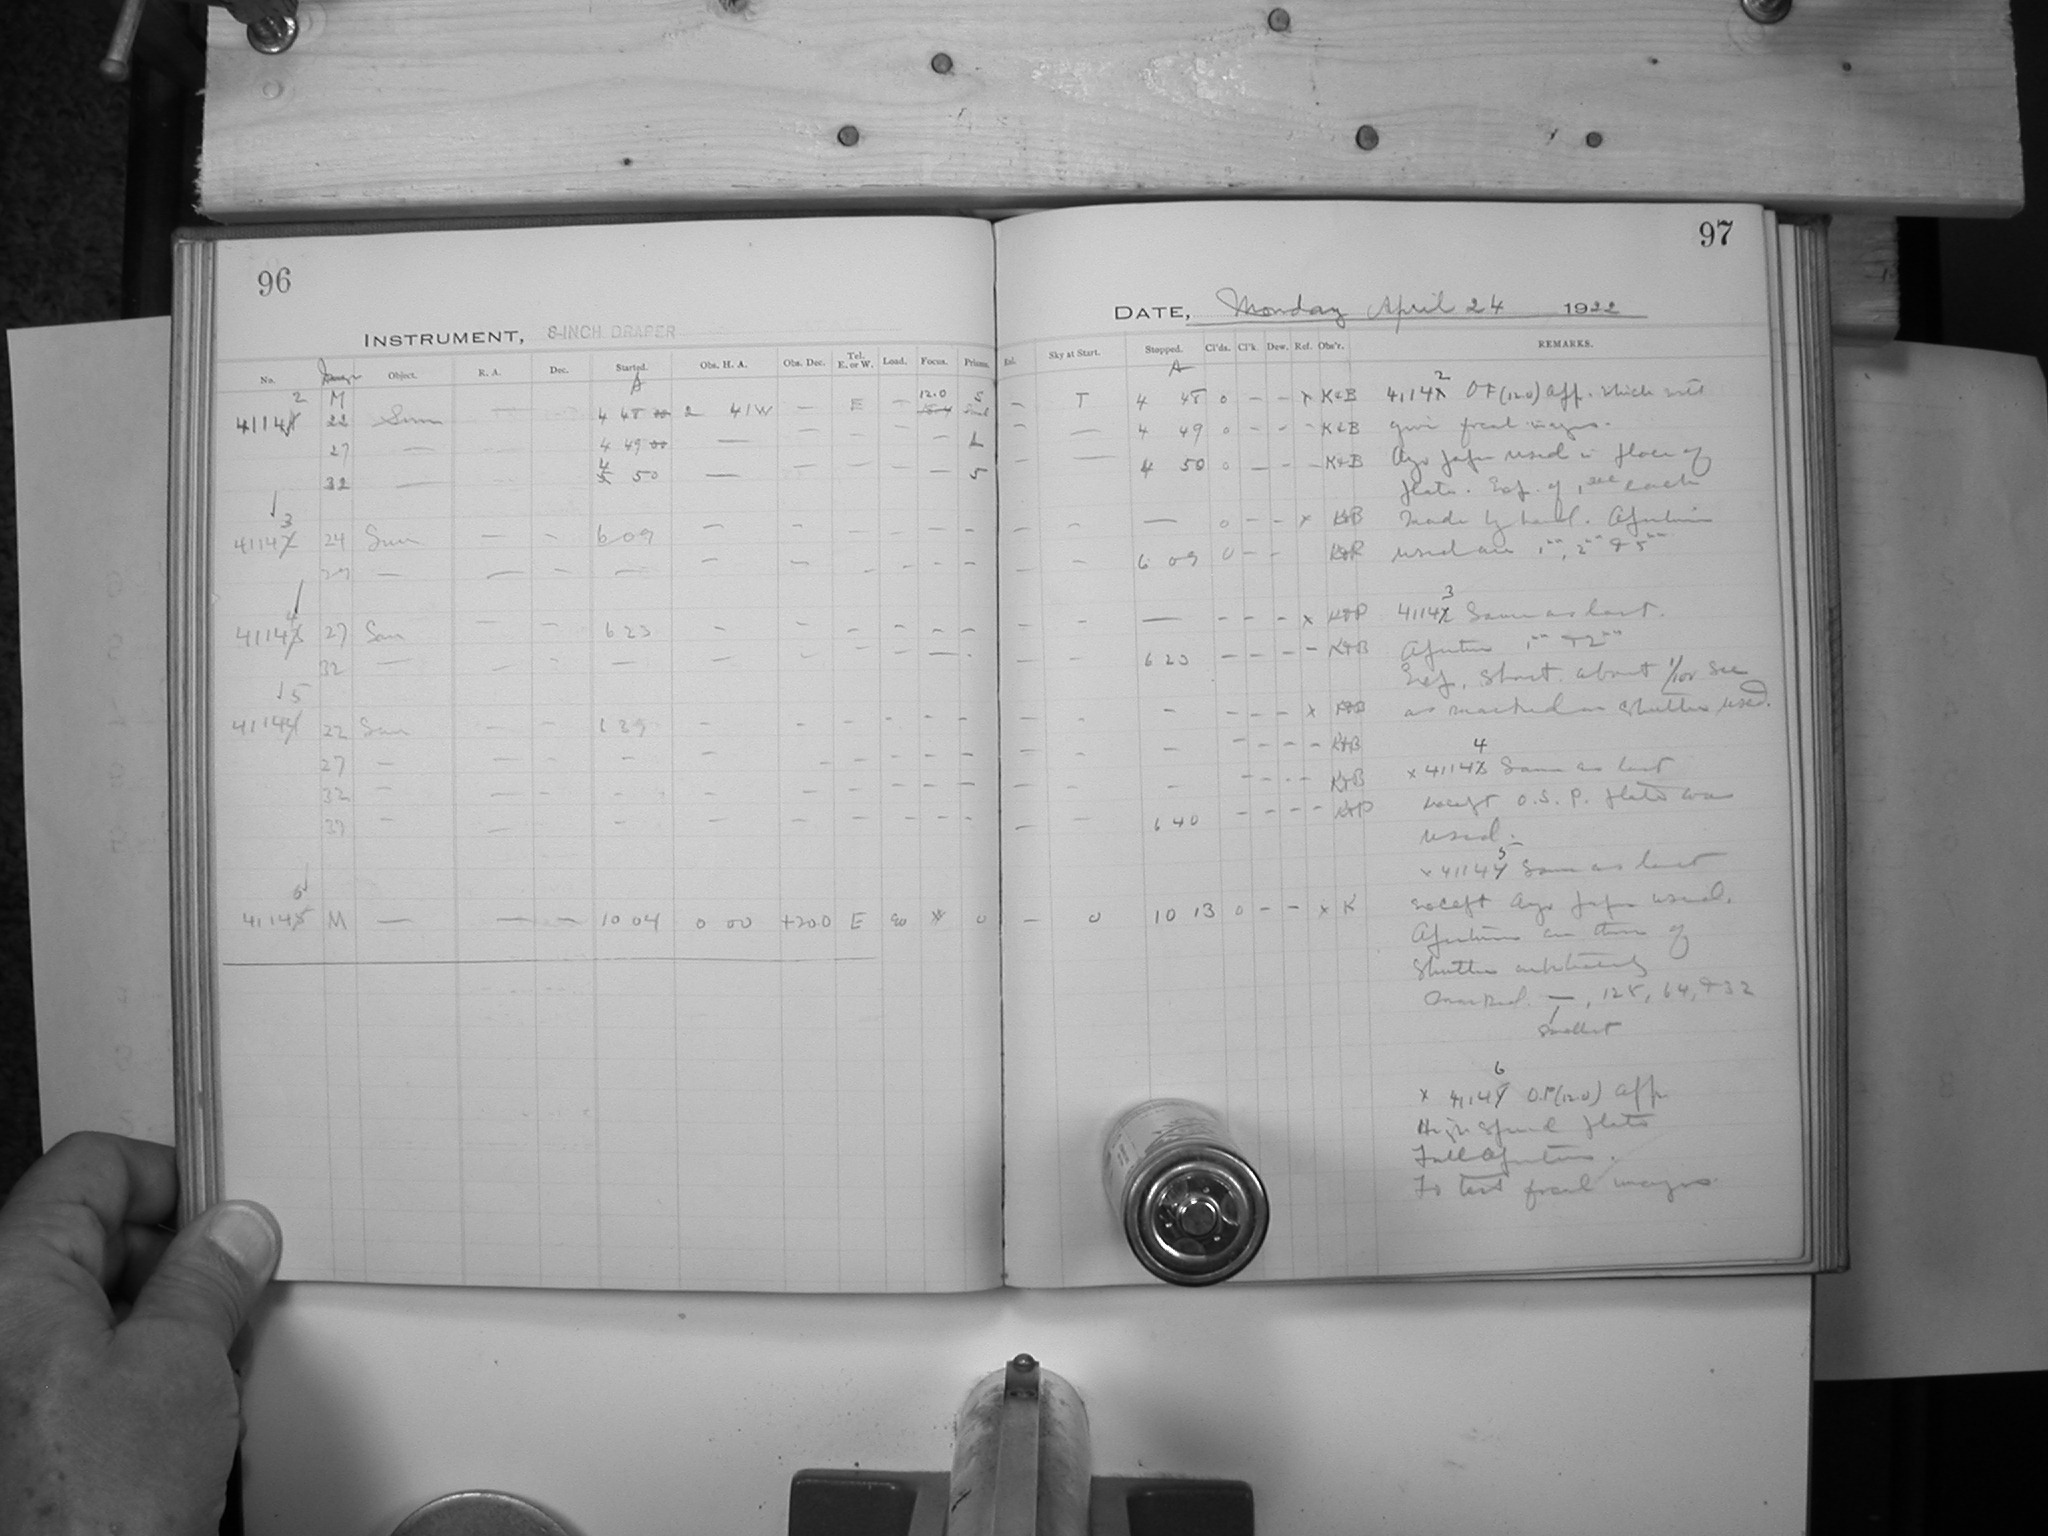 96
INSTRUMENT, 8-INCH DRAPER
No. Object. R. A. Dec. Started. Obs. H. A. Obs. Dec. Tel. E. or W. Load. Focus. Prisms.
A
2 M 12.0 S
4114 22 Sun 4 48 2 41 W — E —
27 — 4 49 00 — — — — — L
32 — 4 50 — — — — — S
3
4114 24 Sun — — 6 09 — — — — — —
— — — — — — — — — —
4
4114 27 Sun — — 6 23 — — — — — —
32 — — — — — — — — — —
5
4114 22 Sun — — 6 39 — — — — — —
27 — — — — — — — — — —
32 — — — — — — — — — —
37 — — — — — — — — —
6
4114 M — — — 10 04 0 00 +20.0 E 90 0
97
DATE, Monday April 24 1922
Exl. Sky at Start. Stopped. Cl'ds. Cl'k. Dew. Ref. Obs'r. REMARKS.
A
— T 4 48 0 — — x K&B
— — 4 49 0 — — — K&B
— — 4 50 0 — — — K&B
— — — 0 — — x K&B
— — 6 09 0 — — K&B
— — — — — — x K&B
— — 6 23 — — — — K&B
— — — — x K&B
— — — — — — — K&B
— — — — K&B
— — 6 40 — — — — K&B
— 0 10 13 0 — — x K
2
4114 O F (12.0) App. which will
give focal images.
Azo paper used in place of
plate. Exp. of 1 sec each
made by hand. Apertures
used are 1", 2" & 5"
3
4114 Same as last.
Aperture 1" & 2"
Exp. short about 1/100 sec
as marked on shutter used.
4
x 4114 Same as last
except O. S. P. plate was
used.
5
x 4114 Same as last
except Azo paper used.
Apertures are those of
shutter arbitrarily
marked —, 128, 64, & 32
smallest
6
x 4114 O.F (12.0) App.
High Speed plate
Full Aperture.
To test focal images